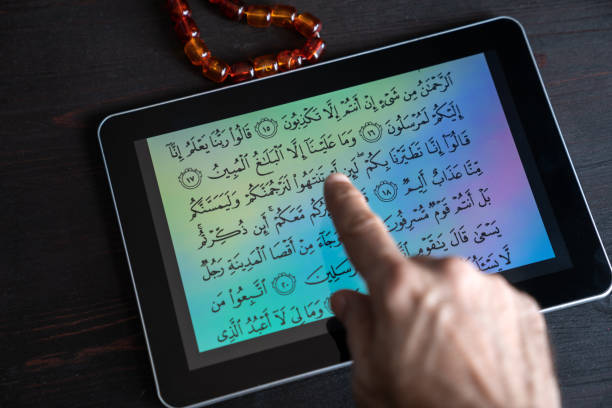 ٱلرَّحْمَٰنُ مِن شَىْءٍ إِنْ أَنتُمْ إِلَّا تَكْذِبُونَ ١٥ قَالُوا۟ رَبُّنَا يَعْلَمُ إِنَّآ
إِلَيْكُمْ لَمُرْسَلُونَ ١٦ وَمَا عَلَيْنَآ إِلَّا ٱلْبَلَٰغُ ٱلْمُبِينُ ١٧
قَالُوٓا۟ إِنَّا تَطَيَّرْنَا بِكُمْ لَئِن تَنتَهُوا۟ لَنَرْجُمَنَّكُمْ وَلَيَمَسَّنَّكُم
مِّنَّا عَذَابٌ أَلِيمٌ ١٨ مَّعَكُمْ أَئِن ذُكِّرْتُم
بَلْ أَنتُمْ قَوْمٌ مُّسْرِفُونَ مِنْ أَقْصَا ٱلْمَدِينَةِ رَجُلٌ
يَسْعَىٰ قَالَ يَٰقَوْمِ ٱتَّبِعُوا۟ ٢٠ ٱتَّبِعُوا۟ مَن
لَّا وَمَا لِىَ لَآ أَعْبُدُ ٱلَّذِى